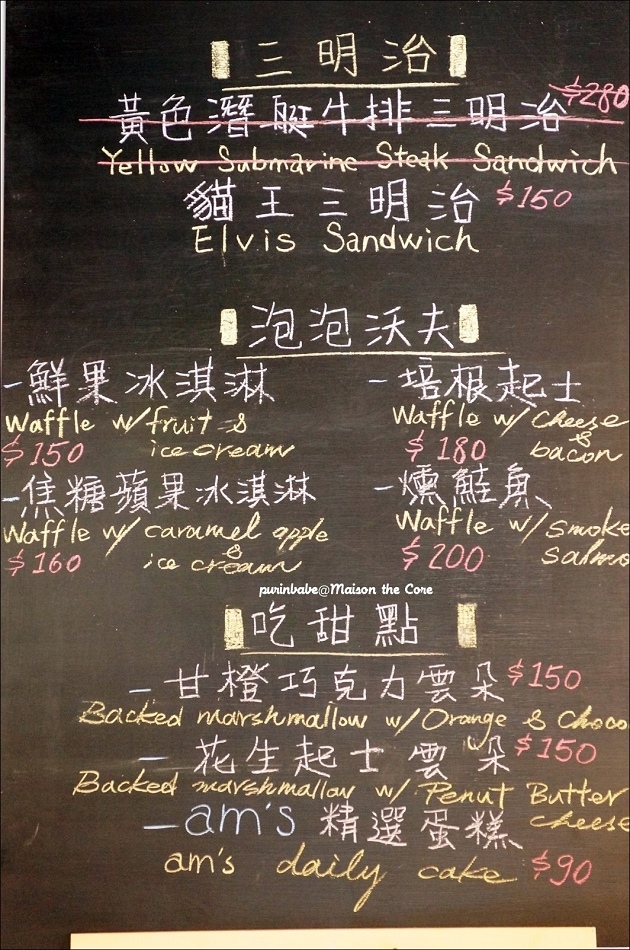 三明治
黃色潛艇牛排三明治 $280
Yellow Submarine Steak Sandwich
貓王三明治 $150
Elvis Sandwich
泡泡沃夫
-鮮果冰淇淋
Waffle w/ fruit &
ice cream
$150
-培根起士
Waffle w/ cheese
&
bacon
$180
-焦糖蘋果冰淇淋
Waffle w/ caramel apple
&
ice cream
$160
-燻鮭魚
Waffle w/ smoke
salmo
$200
purinbabe@Maison the Core
吃甜點
-甘橙巧克力雲朵 $150
Backed marshmallow w/ Orange & Choco
-花生起士雲朵 $150
Backed marshmallow w/ Penut Butter
cheese
-am's 精選蛋糕
am's daily cake $90